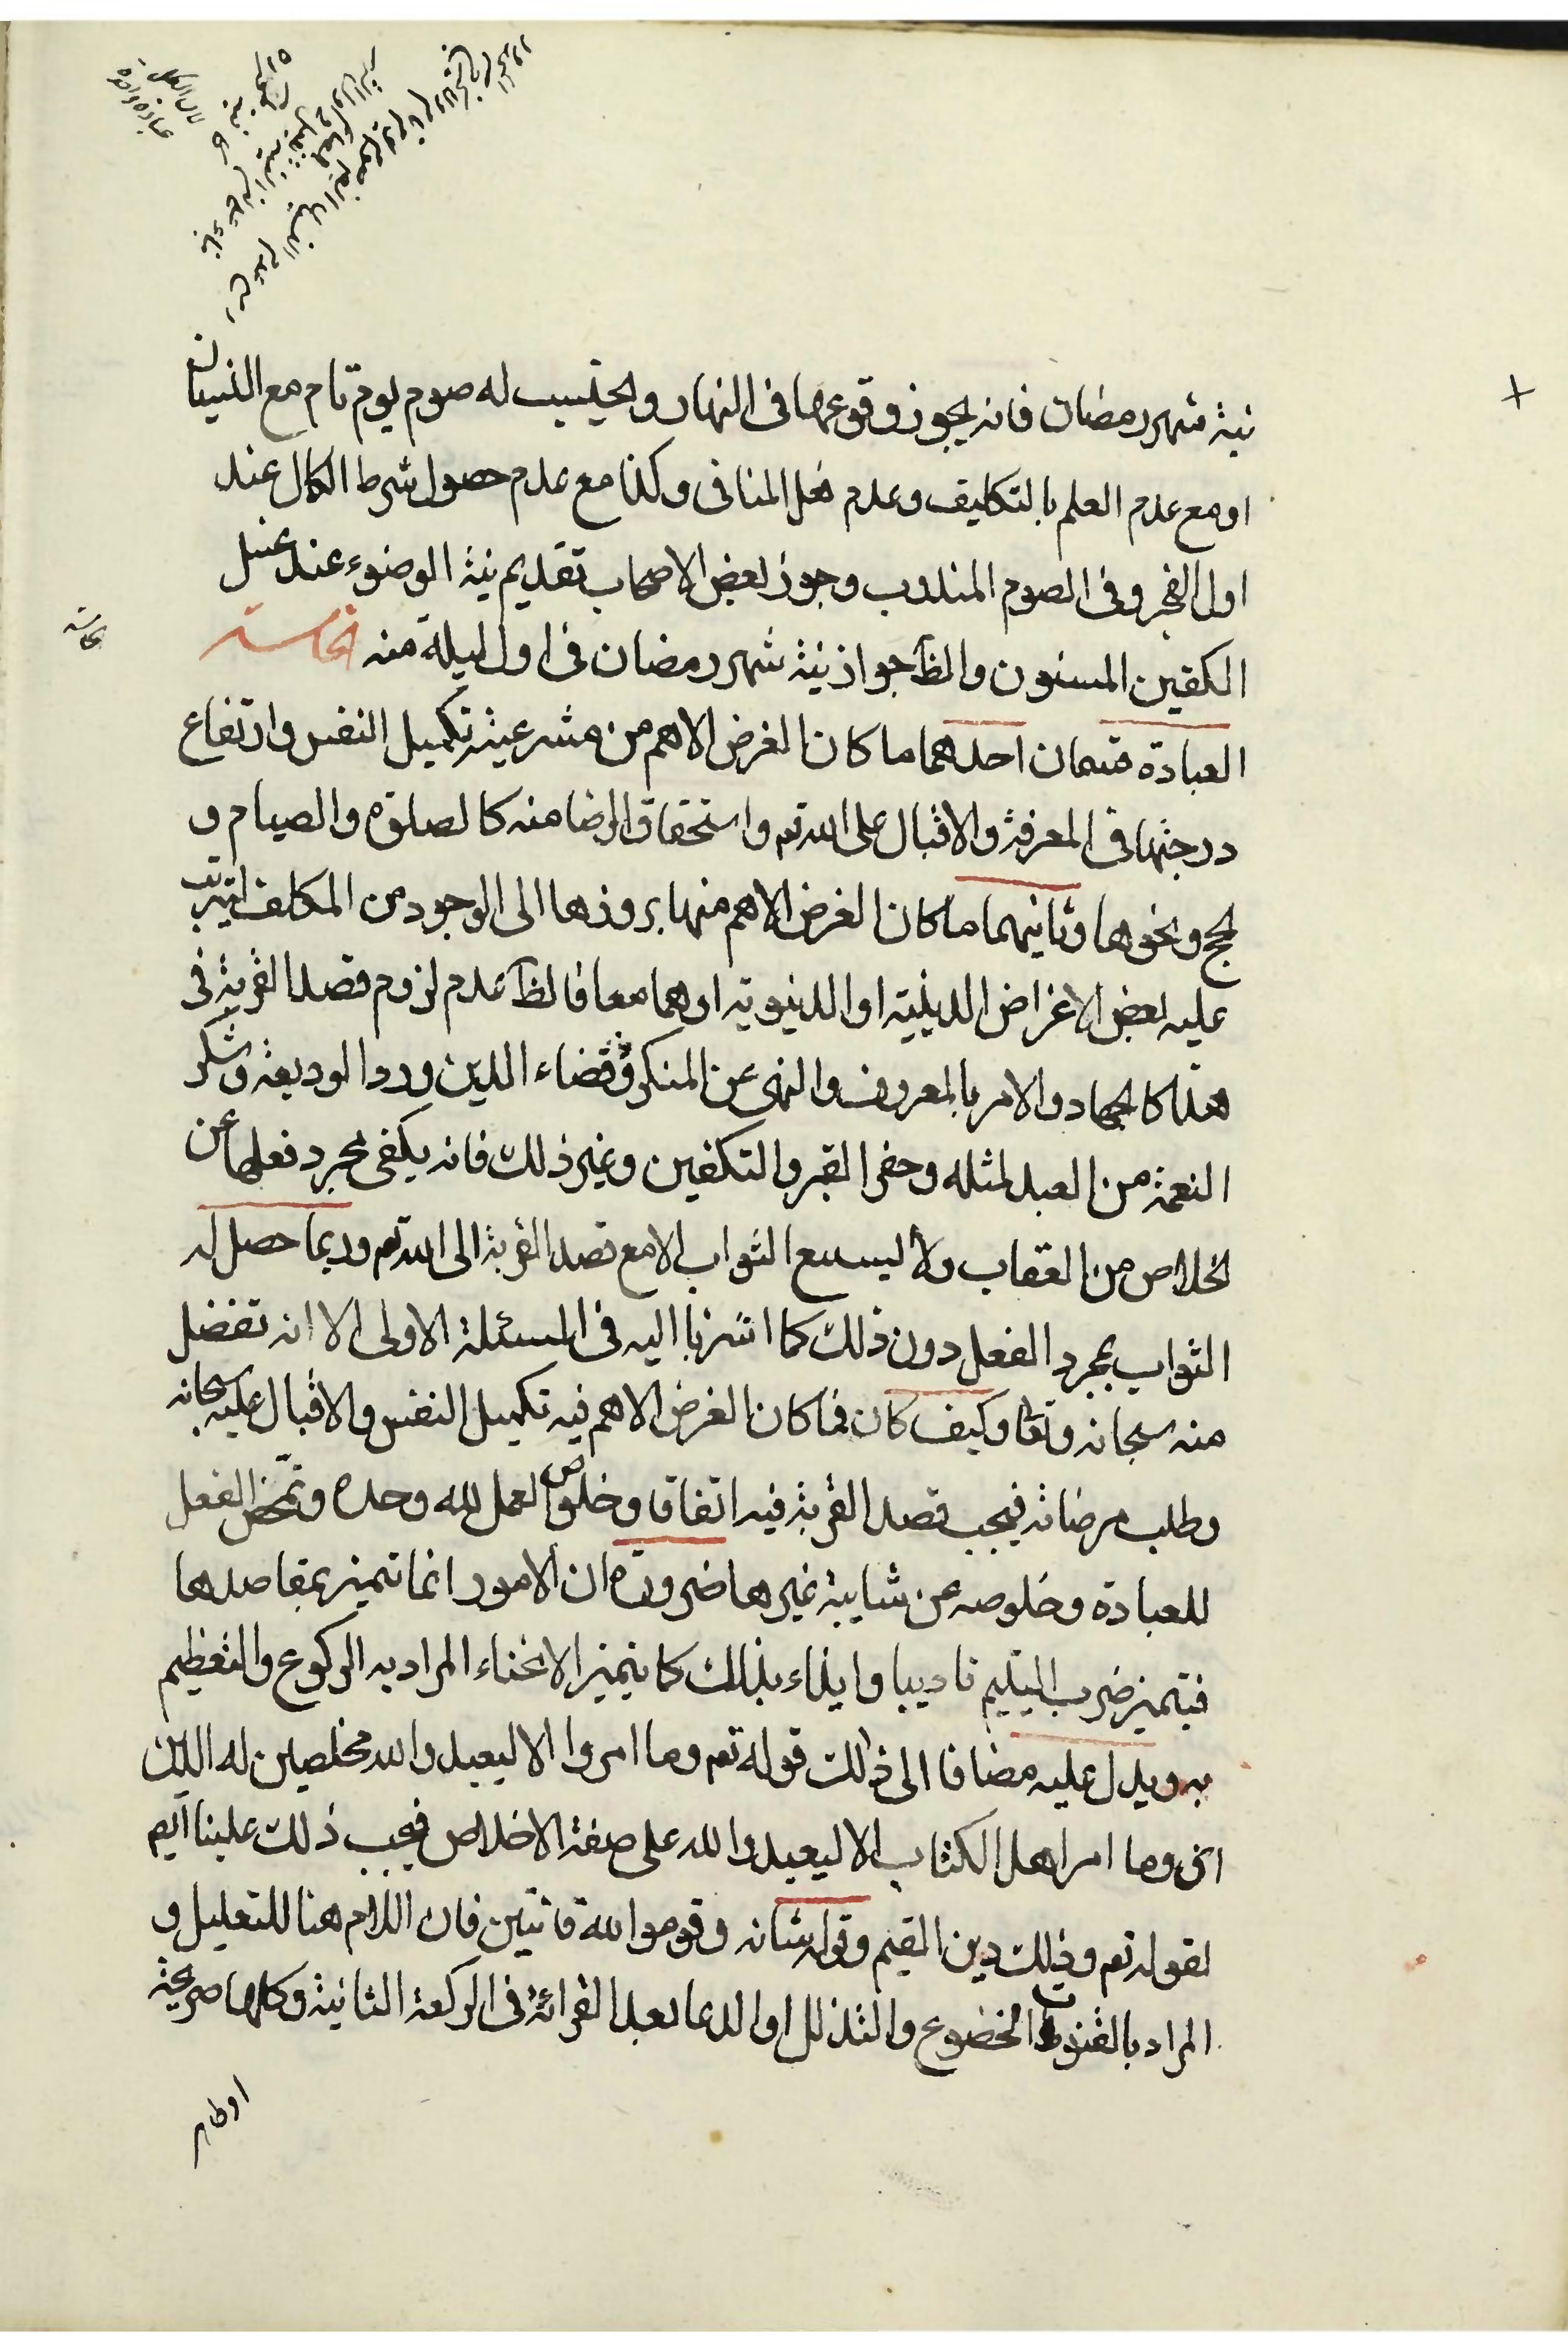 نية شهر رمضان فانه يجوز وقوعها فى النهار ويحتسب له صوم يوم تام مع النسيان
او مع عدم العلم بالتكليف وعدم فعل المنافى وكذا مع عدم حصول شرط الكمال عند
اول الفجر وفى الصوم المندوب وجوز بعض الاصحاب تقديم نية الوضوء عند غسل
الكفين المسنون والظ جواز نية شهر رمضان فى اول ليلة منه الخامسة
الخامسة
العبادة قسمان احدهما ما كان الغرض الاهم من مشرعيته تكميل النفس وارتفاع
درجتها فى المعرفة والاقبال على الله تعم واستحقاق الرضا منه كالصلوة والصيام و
الحج ونحوها وثانيهما ما كان الغرض الاهم منها بروزها الى الوجود من المكلف ليترتب
عليه بعض الاغراض الدينية او الدنيوية او هما معا فالظ عدم لزوم قصد القربة فى
هذا كالجهاد والامر بالمعروف والنهى عن المنكر وقضاء الدين ورد الوديعة وشكر
النعمة من العبد لمثله وحفر القبر والتكفين وغير ذلك فانه يكفى مجرد فعلها عن
الخلاص من العقاب ولا يستتبع الثواب الا مع قصد القربة الى الله تعم وربما حصل له
الثواب بمجرد الفعل دون ذلك كما اشرنا اليه فى المسئلة الاولى الا انه تفضل
منه سبحانه وتعا وكيف كان فما كان الغرض الاهم فيه تكميل النفس والاقبال عليه سبحانه
وطلب مرضاته فيجب قصد القربة فيه اتفاقا وخلوص العمل لله وحده وتمحض الفعل
للعبادة وخلوصه عن شايبة غيرها ضرورة ان الامور انما تتميز بمقاصدها
فيتميز ضرب اليتيم تاديبا وايذاء بذلك كما يتميز الانحناء المراد به الركوع والتعظيم
به ويدل عليه مضافا الى ذلك قوله تعم وما امروا الا ليعبدوا الله مخلصين له الدين
اى وما امر اهل الكتاب الا ليعبدوا الله على صفة الاخلاص فيجب ذلك علينا ايم
لقوله تعم وذلك دين القيم وقوله شانه وقوموا لله قانتين فان اللام هنا للتعليل و
المراد بالقنوت الخضوع والتذلل او الدعا بعد القرائة فى الركعة الثانية وكلها صريحة
او ظاهر